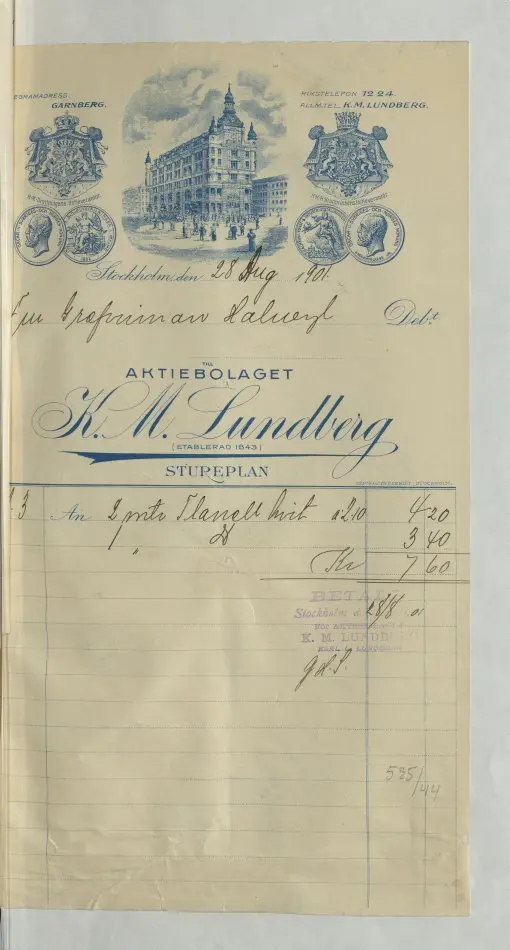 EGRAMADRESS:
GARNBERG.
RIKSTELEFON 1224.
ALLM.TEL. K.M. LUNDBERG.
Stockholm den 28 Aug 1901.
Fru Grefvinnan Halwyl
Debet
TILL
AKTIEBOLAGET
K. M. Lundberg
(ETABLERAD 1843)
STUREPLAN
3 An 2 mtr Flanell hvit a 2.10 4 20
1 " D 3 40
Kr 7 60
BETAL
Stockholm d. 28/8 01
FÖR AKTIEBOLAGET
K. M. LUNDBERG
535/44